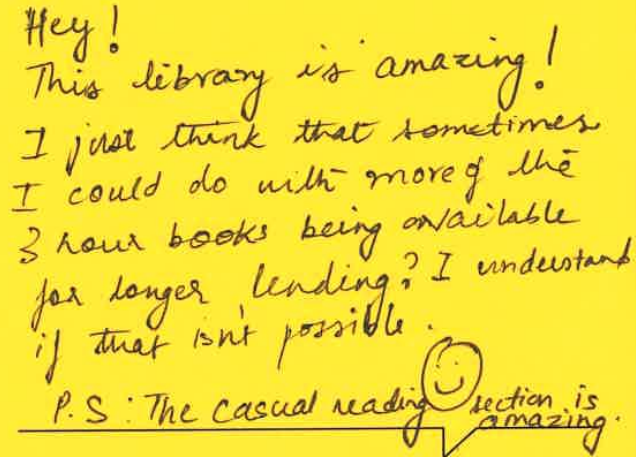 Hey!
This library is amazing!
I just think that sometimes
I could do with more of the
3 hour books being available
for longer lending? I understand
if that isn't possible.
P.S: The casual reading section is
amazing.